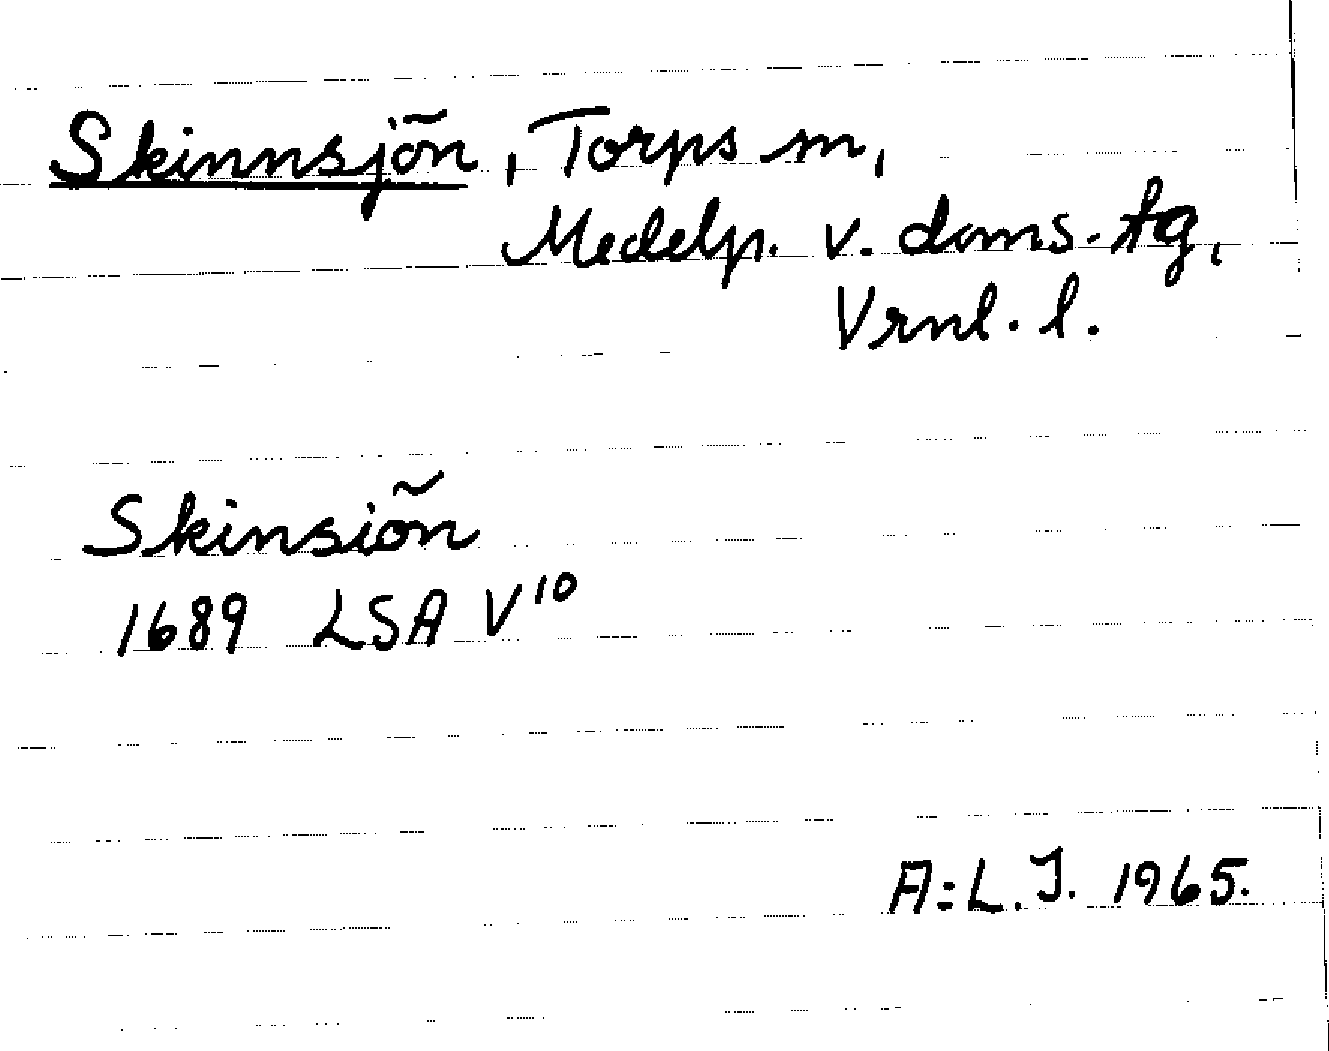 Skinnsjön, Torps sn,
Medelp. v. doms. tg,
Vrnl. l.
Skinsiön
1689 LSA V¹⁰
A:L.J. 1965.